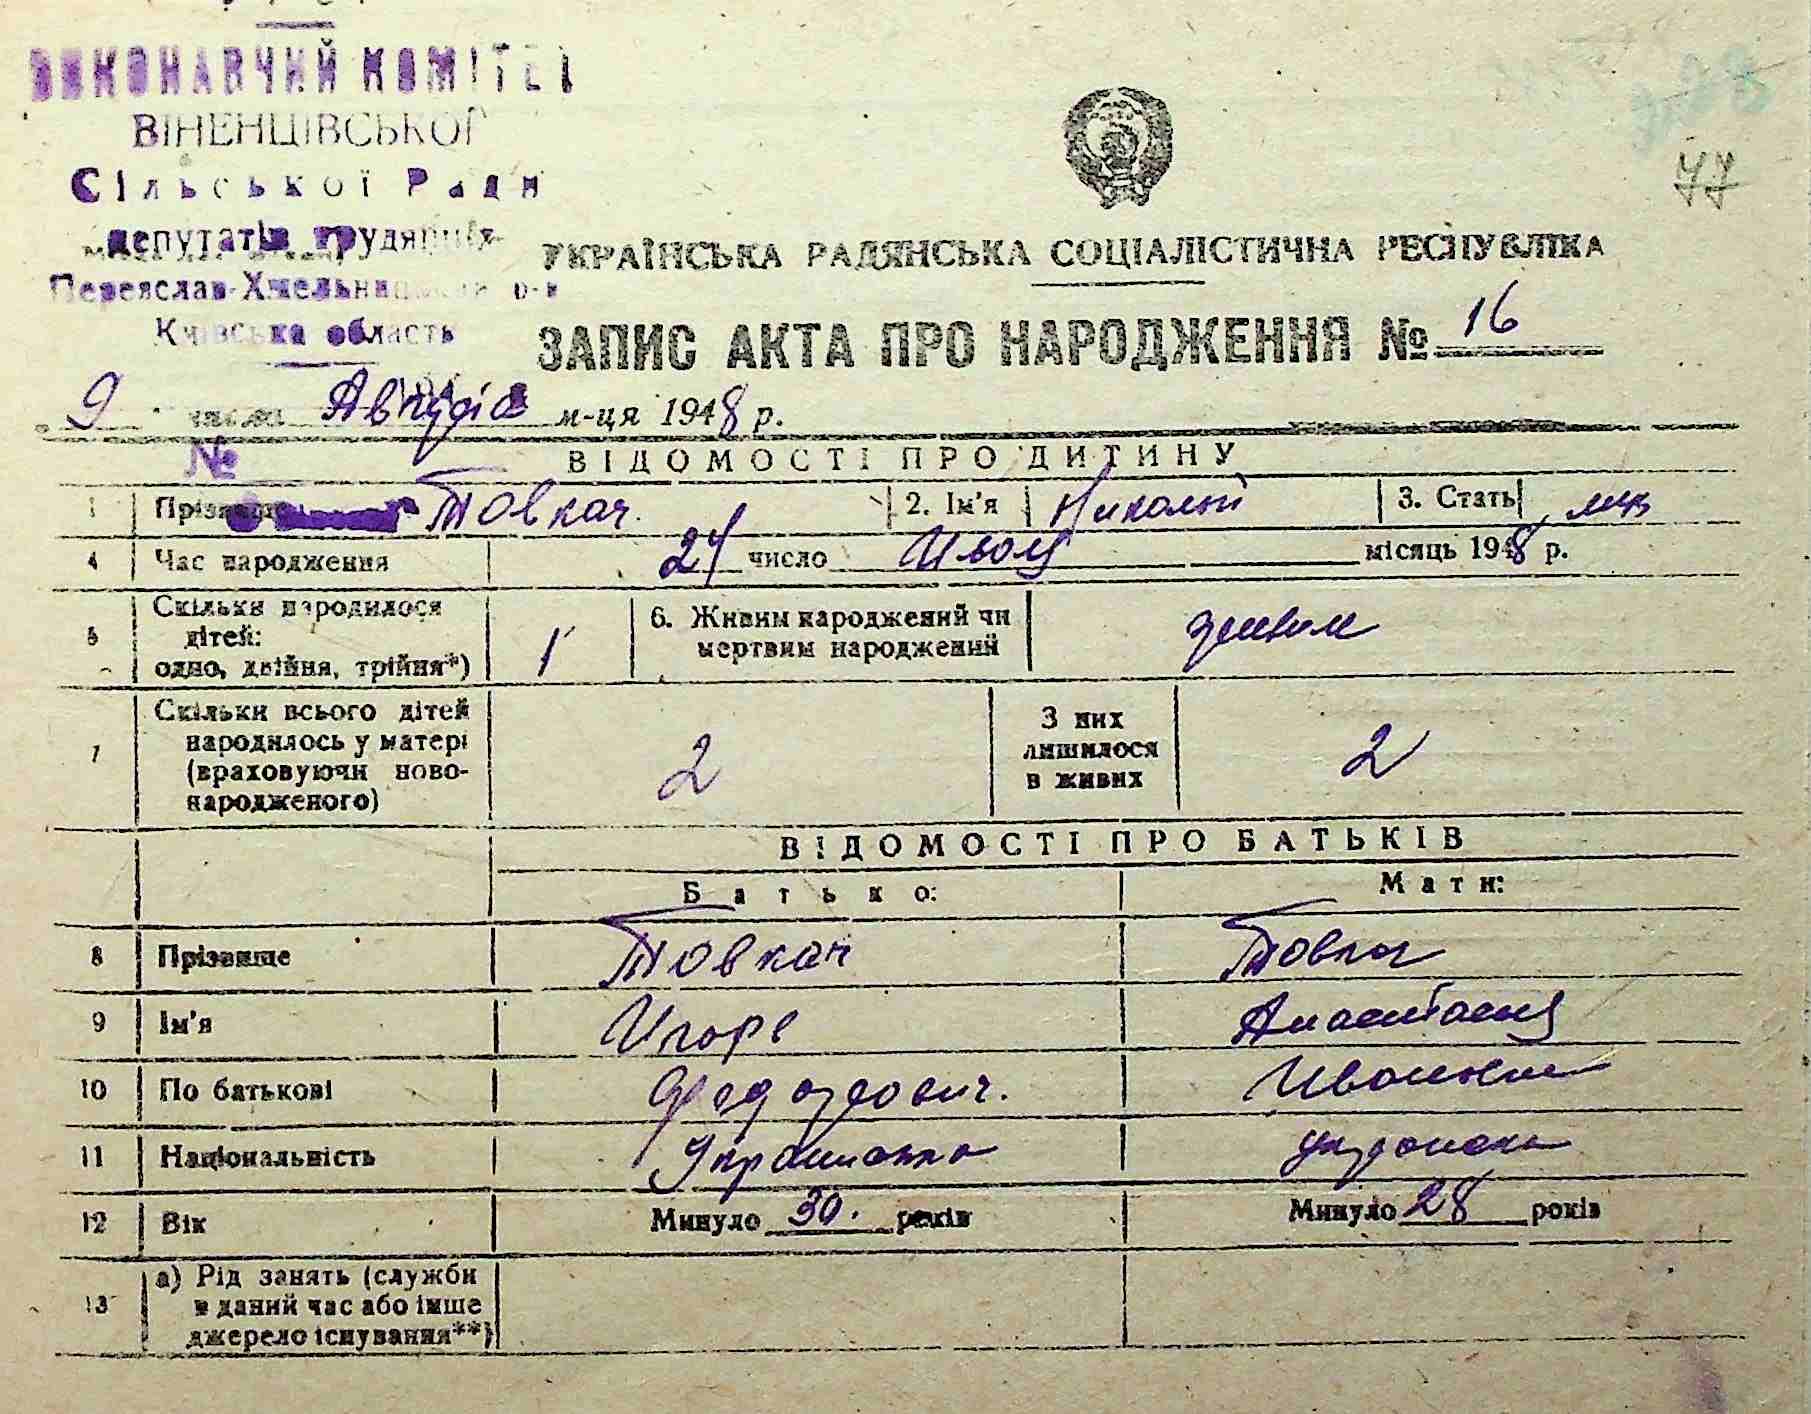 ВИКОНАВЧИЙ КОМІТЕТ
ВІНЕНЦІВСЬКОЇ
Сільської Ради
депутатів трудящих
Переяслав-Хмельницький р-н
Київська область
77
УКРАЇНСЬКА РАДЯНСЬКА СОЦІАЛІСТИЧНА РЕСПУБЛІКА
ЗАПИС АКТА ПРО НАРОДЖЕННЯ № 16
9 числа Августа м-ця 1948 р.
№
ВІДОМОСТІ ПРО ДИТИНУ
1 Прізвище Товкач. 2. Ім'я Николай 3. Стать муж
4 Час народження 24 число Июля місяць 1948 р.
5 Скільки народилося дітей: одно, двійня, трійня*) 1 6. Живим народжений чи мертвим народжений живим
7 Скільки всього дітей народилось у матері (враховуючи новонародженого) 2 З них лишилося в живих 2
ВІДОМОСТІ ПРО БАТЬКІВ
Батько: Мати:
8 Прізвище Товкач Товкач
9 Ім'я Игорь Анастасия
10 По батькові Федорович. Ивановна
11 Національність
12 Вік Минуло 30. років Минуло 28 років
13 а) Рід занять (служби в даний час або інше джерело існування**)